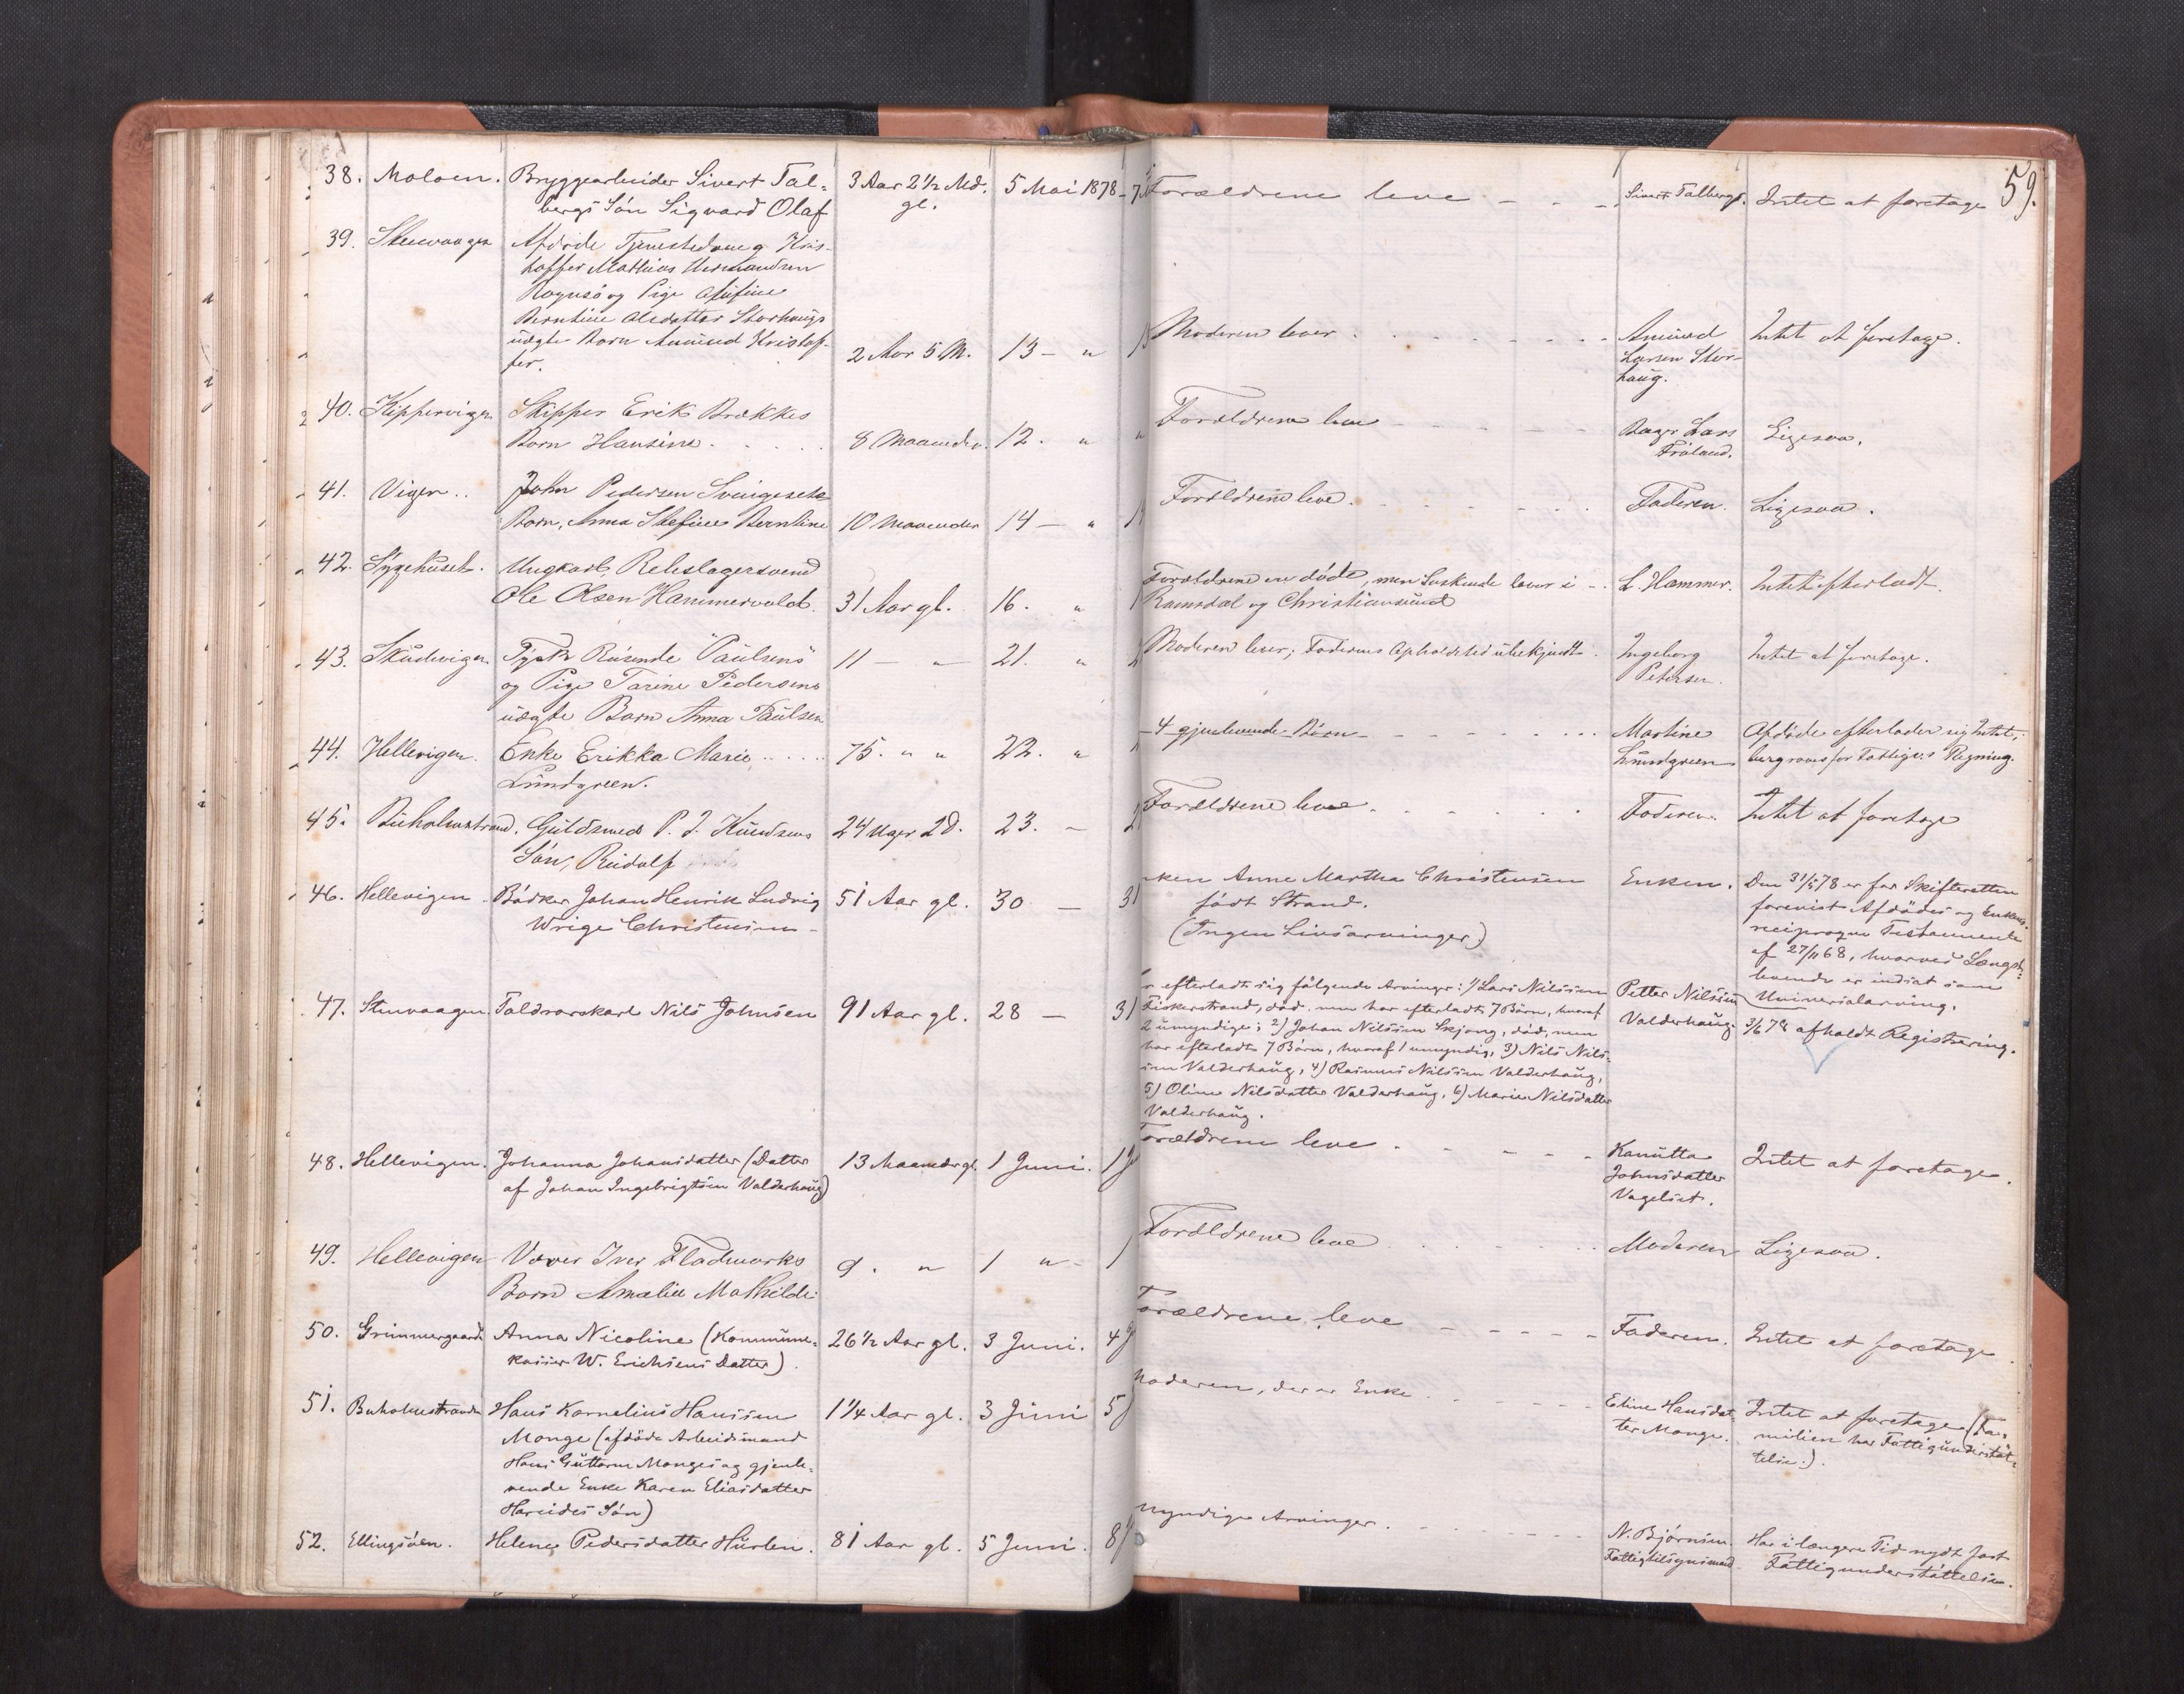 59.
38. Moloen. Bryggearbeider Sivert Tal-
bergs Sön Sigvard Olaf
3 Aar 2 1/2 Md.
gl.
5 Mai 1878 - 7
Forældrene leve - - -
Sivert Talbergs.
Intet at foretage
39. Stenvaagen Afdöde Tjenestedreng Kris-
toffer Mathias Hermandsen
og Pige
Berntine Olsdatter Storhaugs
uægte Barn Amund Kristof-
fer.
2 Aar 5 M. 13 - "
Moderen lever
Amund
Larsen Stor-
haug.
Intet at foretage.
40. Kippervigen Skipper Erik Brækkes
Barn Hansine
8 Maaneder. 12. "
Forældrene leve
Bager Lars
Fröland.
Ligesaa.
41. Vigen John Pedersen Svingesets
Barn, Anna Stefine Berntine
10 Maaneder 14 - "
Forældrene leve.
Faderen. Ligesaa.
42. Sygehuset. Ungkarl, Rebslagersvend
Ole Olsen Hammervold.
31 Aar gl. 16. "
Forældrene ere döde, men Söskende lever i
Romsdal og Christiansund
L. Hammer. Intet efterladt.
43. Skudevigen Tysk Reisende "Paulsens"
og Pige Tarine Pedersens
uægte Barn Anna Paulsen
11 - " 21. "
Moderen lever; Faderens Opholdsted ubekjendt.
Ingeborg
Petersen.
Intet at foretage.
44. Hellevigen. Enke Erikka Marie
Lundgreen.
75. " " 22. "
4 gjenlevende Börn
Martine
Lundgreen
Afdöde efterlader sig Intet,
begraves for Fattigv.s Regning.
45. Buholmstrand. Guldsmed P. J. Knudsens
Sön, Rudolf
24 Uger 2 D. 23. -
Forældrene leve
Faderen. Intet at foretage
46. Hellevigen. Bödker Johan Henrik Ludvig
Wrige Christensen
51 Aar gl. 30 - 31
ken Anne Martha Christensen
född Strand.
(Ingen Livsarvinger)
Enken.
Den 31/5 78 er for Skifteretten
forevist Afdödes og Enkens
reciproque Testamente
af 27/11 68, hvorved Længst-
levende er indsat som
Universalarving.
47. Stenvaagen. Foldrorskarl Nils Johnsen
91 Aar gl. 28 - 31
efterladt sig fölgende Arvinger: 1) Lars Nilssen
Fiskerstrand, död, men har efterladt 7 Börn, hvoraf
2 umyndige; 2) Johan Nilssen Skjong, död, men
har efterladt 7 Börn, hvoraf 1 umyndig, 3) Nils Nils-
sen Valderhaug, 4) Rasmus Nilssen Valderhaug,
5) Oline Nilsdatter Valderhaug, 6) Marie Nilsdatter
Valderhaug.
Petter Nilssen
Valderhaug.
3/6 78 afholdt Registrering.
48. Hellevigen. Johanna Johansdatter (Datter
af Johan Ingebrigtsen Valderhaug)
13 Maaneder gl. 1 Juni. 1
orældrene leve
Kanutta
Johnsdatter
Vagelset.
Intet at foretage.
49. Hellevigen Væver Iver Fladmarks
Barn Amalie Mathilde
9. " 1 " 1
Forældrene leve
Moderen Ligesaa.
50. Grimmergaard. Anna Nicoline (Kommune-
kasser W. Erichsens Datter).
26 1/2 Aar gl. 3 Juni. 4
Forældrene leve
Faderen. Intet at foretage
51. Buholmstranden Hans Kornelius Hanssen
Monge (afdöde Arbeidsmand
Hans Guttorm Monges og gjenle-
vende Enke Karen Eliasdatter
Hareides Sön)
1 1/4 Aar gl. 3 Juni 5
oderen, der er Enke
Eline Hansdat-
ter Monge.
Intet at foretage (Fa-
milien har Fattigunderstöt-
telse).
52. Ellingsöen. Helene Pedersdatter Hurlen.
81 Aar gl. 5 Juni. 8
myndige Arvinger.
N. Björnsen
Fattigtilsynsmand
Har i længere Tid nydt fast
Fattigunderstöttelse.